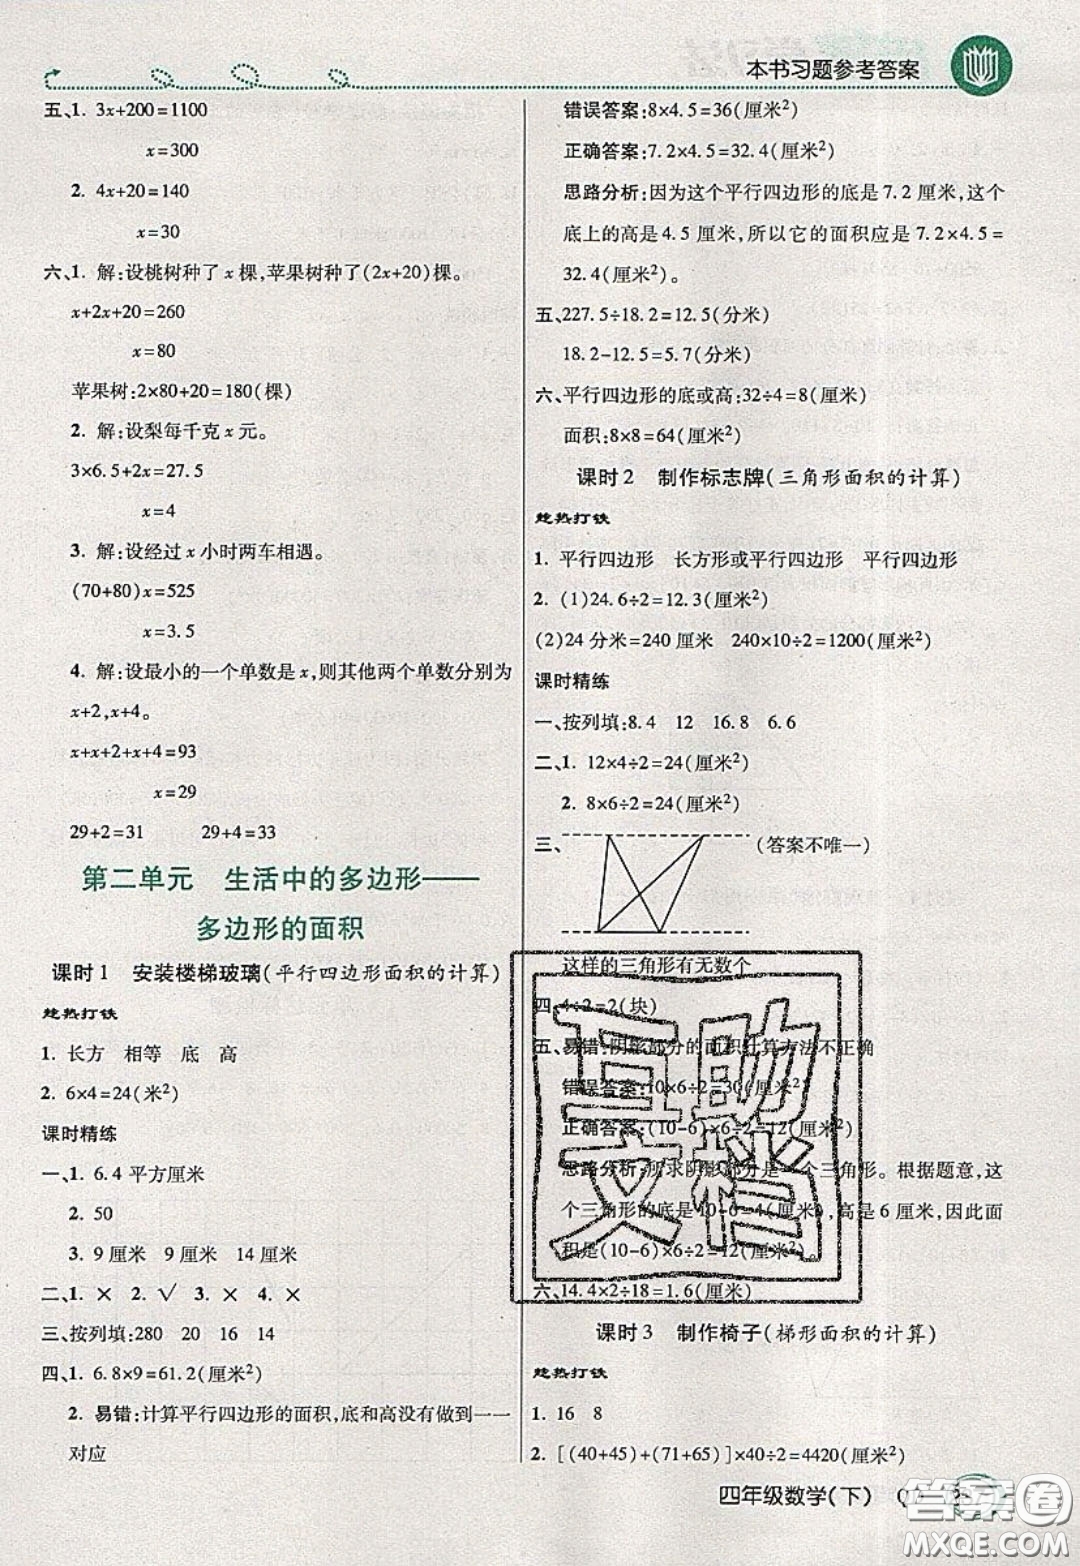 本书习题参考答案
五、1. 3x+200=1100
x=300
2. 4x+20=140
x=30
六、1. 解:设桃树种了 x 棵,苹果树种了(2x+20)棵。
x+2x+20=260
x=80
苹果树:2×80+20=180(棵)
2. 解:设梨每千克 x 元。
3×6.5+2x=27.5
x=4
3. 解:设经过 x 小时两车相遇。
(70+80)x=525
x=3.5
4. 解:设最小的一个单数是 x,则其他两个单数分别为
x+2,x+4。
x+x+2+x+4=93
x=29
29+2=31 29+4=33
第二单元 生活中的多边形——
多边形的面积
课时1 安装楼梯玻璃(平行四边形面积的计算)
趁热打铁
1. 长方 相等 底 高
2. 6×4=24(米²)
课时精练
一、1. 6.4 平方厘米
2. 50
3. 9 厘米 9 厘米 14 厘米
二、1. × 2. √ 3. × 4. ×
三、按列填:280 20 16 14
四、1. 6.8×9=61.2(厘米²)
2. 易错:计算平行四边形的面积,底和高没有做到一一
对应
错误答案:8×4.5=36(厘米²)
正确答案:7.2×4.5=32.4(厘米²)
思路分析:因为这个平行四边形的底是 7.2 厘米,这个
底上的高是 4.5 厘米,所以它的面积应是 7.2×4.5=
32.4(厘米²)。
五、227.5÷18.2=12.5(分米)
18.2-12.5=5.7(分米)
六、平行四边形的底或高:32÷4=8(厘米)
面积:8×8=64(厘米²)
课时2 制作标志牌(三角形面积的计算)
趁热打铁
1. 平行四边形 长方形或平行四边形 平行四边形
2. (1)24.6÷2=12.3(厘米²)
(2)24 分米=240 厘米 240×10÷2=1200(厘米²)
课时精练
一、按列填:8.4 12 16.8 6.6
二、1. 12×4÷2=24(厘米²)
2. 8×6÷2=24(厘米²)
三、(答案不唯一)
这样的三角形有无数个
四、4÷2=2(块)
五、易错:阴影部分的面积计算方法不正确
错误答案:10×6÷2=30(厘米²)
正确答案:(10-6)×6÷2=12(厘米²)
思路分析:所求阴影部分是一个三角形。根据题意,这
个三角形的底是 10-6=4(厘米),高是 6 厘米,因此面
积是(10-6)×6÷2=12(厘米²)。
六、14.4×2÷18=1.6(厘米)
课时3 制作椅子(梯形面积的计算)
趁热打铁
1. 16 8
2. [(40+45)+(71+65)]×40÷2=4420(厘米²)
四年级数学(下)
互助
文档
答案圈
MXQE.COM